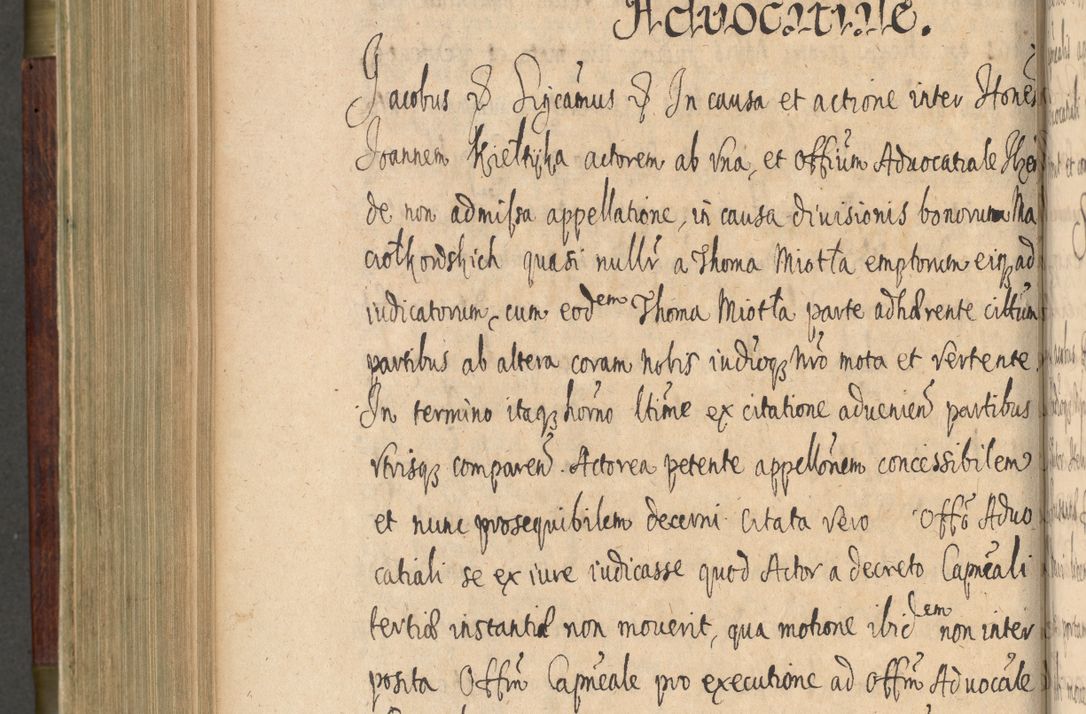 Advocatiale.
Jacobus Rycamus In causa et actione inter Hones
Joannem Kiełtyka actorem ab vna, et Offium Aduocatiale
de non admissa appellatione, in causa diuisionis bonorum Ma
ciołkowskich quasi nullr a Thoma Miotła emptorum eiq ad
iudicatorum, cum eodem Thoma Miotła parte adhærente cittum
partibus ab altera coram nobis iudioq nro mota et vertente.
In termino itaq horno ltime ex citatione aduenien partibus
vtrisq comparen. Actorea petente appellonem concessibilem
et nunc prosequibilem decerni Citata vero Offo Aduo
catiali se ex iure iudicasse quod Actor a decreto Capneali
tertiæ instantiæ non mouerit, qua motione ibidem non inter
posita Offm Capneale pro executione ad offm Aduocale